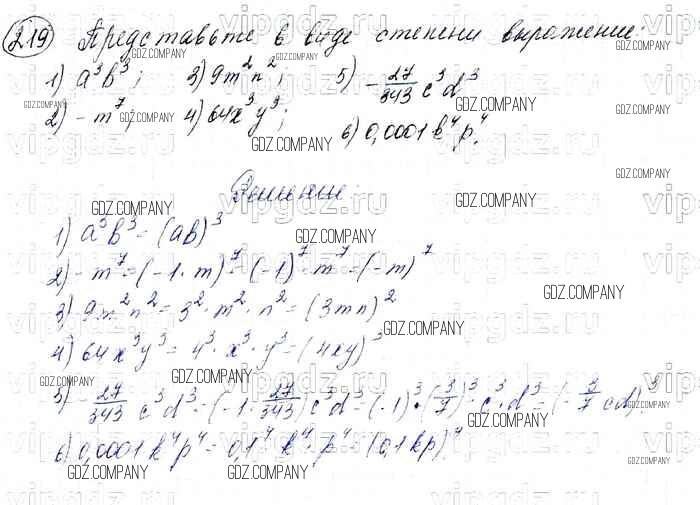 219 Представьте в виде степени выражение:
1) a³b³; 3) 9m²n²; 5) -27/343 c³d³
2) -m⁷; 4) 64x³y³; 6) 0,0001k⁴p⁴.
Решение:
1) a³b³ = (ab)³
2) -m⁷ = (-1·m)⁷ = (-1)⁷·m⁷ = (-m)⁷
3) 9m²n² = 3²·m²·n² = (3mn)²
4) 64x³y³ = 4³·x³·y³ = (4xy)³
5) -27/343 c³d³ = (-1·27/343) c³d³ = (-1)³·(3/7)³·c³·d³ = (-3/7 cd)³.
6) 0,0001k⁴p⁴ = 0,1⁴ k⁴ p⁴ = (0,1kp)⁴.
vipgdz.ru
GDZ.COMPANY